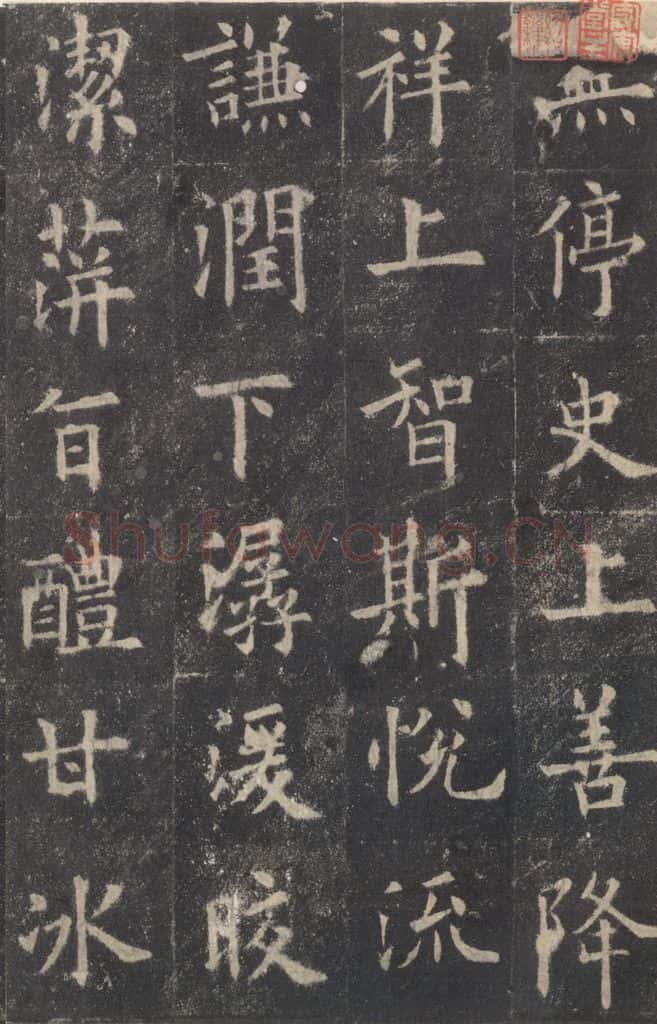 無停史上善降
祥上智斯悅流
謙潤下潺湲皎
潔萍旨醴甘冰
Shufawang.CN